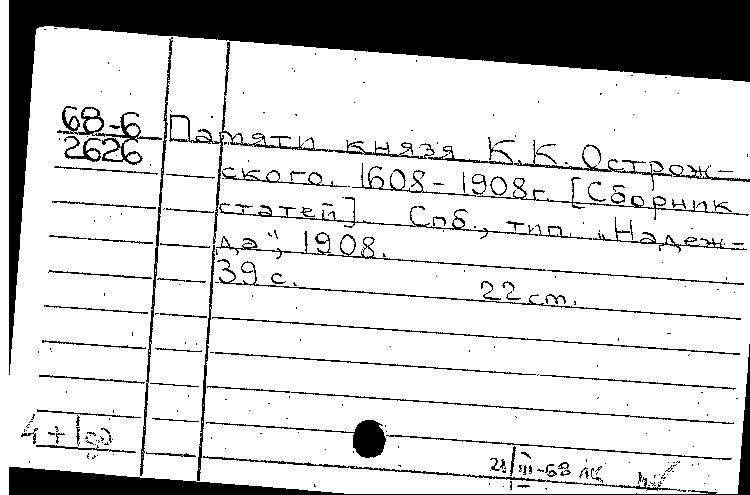 68-6
2626
Памяти князя К.К. Острож-
ского. 1608-1908г. [Сборник
статей]. Спб., тип. „Надеж-
да", 1908.
39 с. 22 cm.
4+1
21/III-68